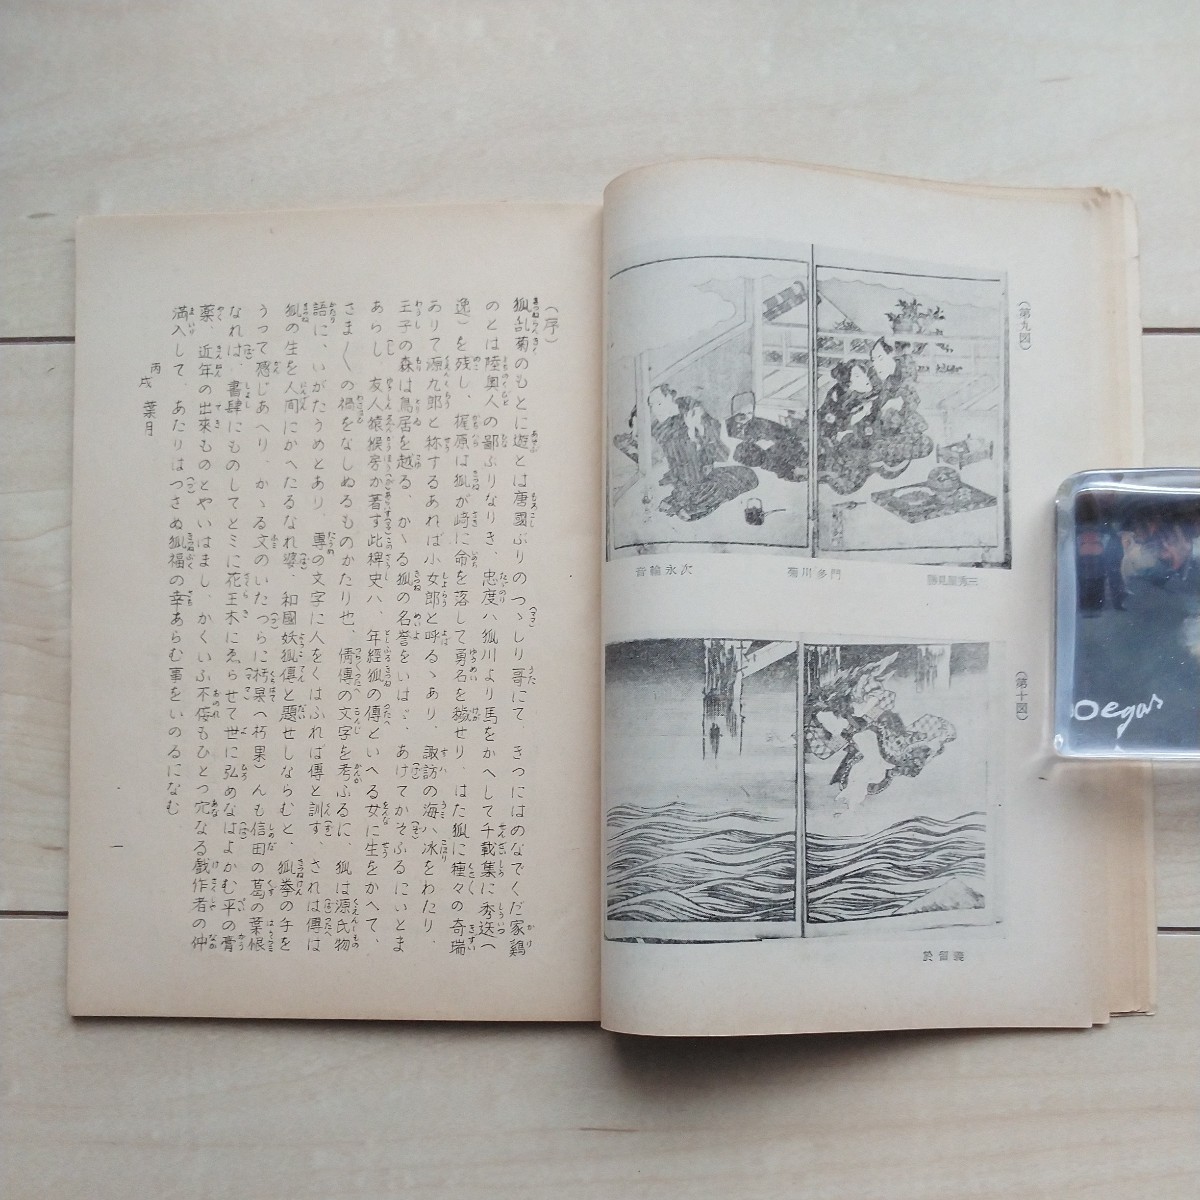 (第九図)
三勝屋見勝
菊川多門
音輪永次
(第十図)
於留義
(序)
狐乱菊のもとに遊とは唐國ぶりのつゝしり哥にて、きつにはのなでくだ家鶏
のとは陸奥人の鄙ぶりなりき、忠度ハ狐川より馬をかへして千載集に秀逸へ
逸)を残し、梶原は狐が﨑に命を落して勇名を穢せり、はた狐に種々の奇瑞
ありて源九郎と称するあれば小女郎と呼るゝあり、諏訪の海ハ氷をわたり、
王子の森は鳥居を越る、かゝる狐の名誉をいはゞ、あけてかぞふるにいとま
あらし 友人猿猴房か著す此稗史ハ、年經狐の傳といへる女に生をかへて、
さま〲の禍をなしぬるものかたり也、倩傳の文字を考ふるに、狐は源氏物
語に、いがたうめとあり、専の文字に人をくはふれば傳と訓ず、されは傳は
狐の生を人間にかへたるなれ婆、和國妖狐傳と題せしならむと、狐拳の手を
うつて感じあへり、かゝる文のいたつらに朽果へ朽果)んも信田の葛の葉恨
なれは、書肆にものしてとミに花王木にゑらせて世に弘めなはよかむ平の膏
薬、近年の出來ものとやいはまし、かくいふ不佞もひとつ穴なる戯作者の仲
満入して、あたりはつさぬ狐福の幸あらむ事をいのるになむ
丙戌 葉月
一
oegas